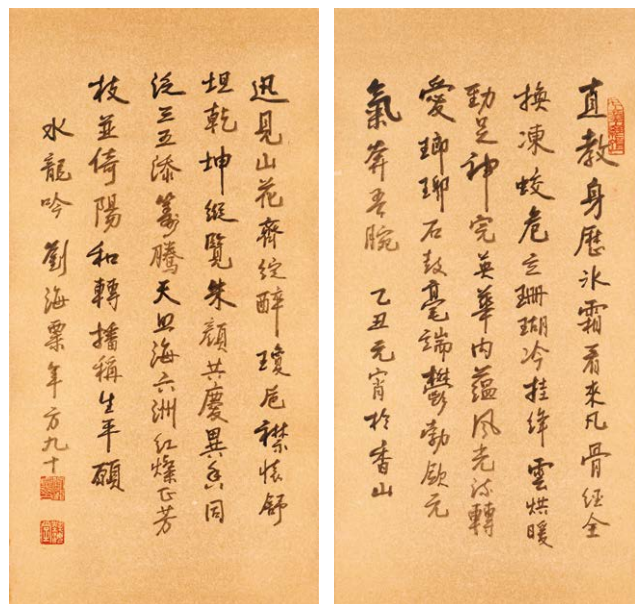 直教身歷冰霜看來凡骨經全
換凍蛟危立珊瑚冷挂絳雲烘暖
勁足神完英華內蘊風光流轉
愛瑯琊石鼓毫端鬱勃斂元
氣奔吾腕 乙丑元宵於香山
迅見山花齊綻醉瓊卮襟懷舒
坦乾坤縱覽朱顏共慶異香同
泛三五添籌騰天照海六洲紅燦正芳
枝並倚陽和轉播稱生平願
水龍吟 劉海粟年方九十